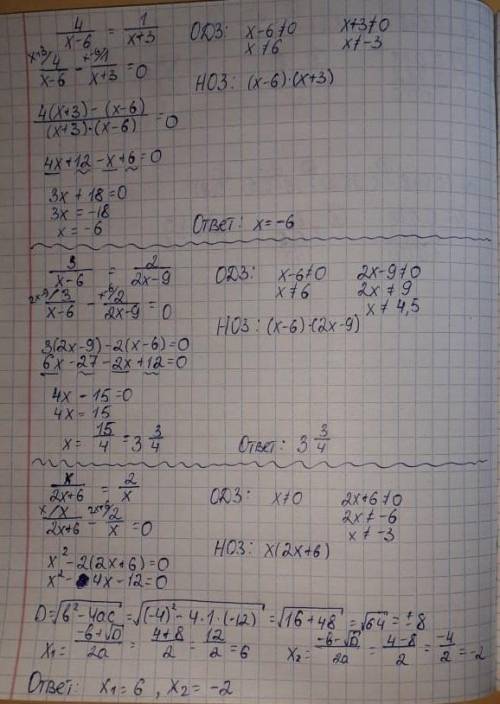 4/(x-6) = 1/(x+3) ОДЗ: x-6≠0 x+3≠0
x≠6 x≠-3
x+3/ 4/(x-6) - x-6/ 1/(x+3) = 0
НОЗ: (x-6)·(x+3)
(4(x+3) - (x-6))/((x+3)·(x-6)) = 0
4x+12-x+6=0
3x+18=0
3x=-18
x=-6 Ответ: x=-6
3/(x-6) = 2/(2x-9) ОДЗ: x-6≠0 2x-9≠0
x≠6 2x≠9
x≠4,5
2x-9/ 3/(x-6) - x-6/ 2/(2x-9) = 0
НОЗ: (x-6)·(2x-9)
3(2x-9)-2(x-6)=0
6x-27-2x+12=0
4x-15=0
4x=15
x= 15/4 = 3 3/4 Ответ: 3 3/4
x/(2x+6) = 2/x ОДЗ: x≠0 2x+6≠0
2x≠-6
x≠-3
x/ x/(2x+6) - 2x+6/ 2/x = 0
НОЗ: x(2x+6)
x²-2(2x+6)=0
x²-4x-12=0
D=√(b²-4ac)=√((-4)²-4·1·(-12))=√(16+48)=√64=±8
x₁= (-b+√D)/2a = (4+8)/2 = 12/2 = 6 x₂= (-b-√D)/2a = (4-8)/2 = -4/2 = -2
Ответ: x₁=6, x₂=-2